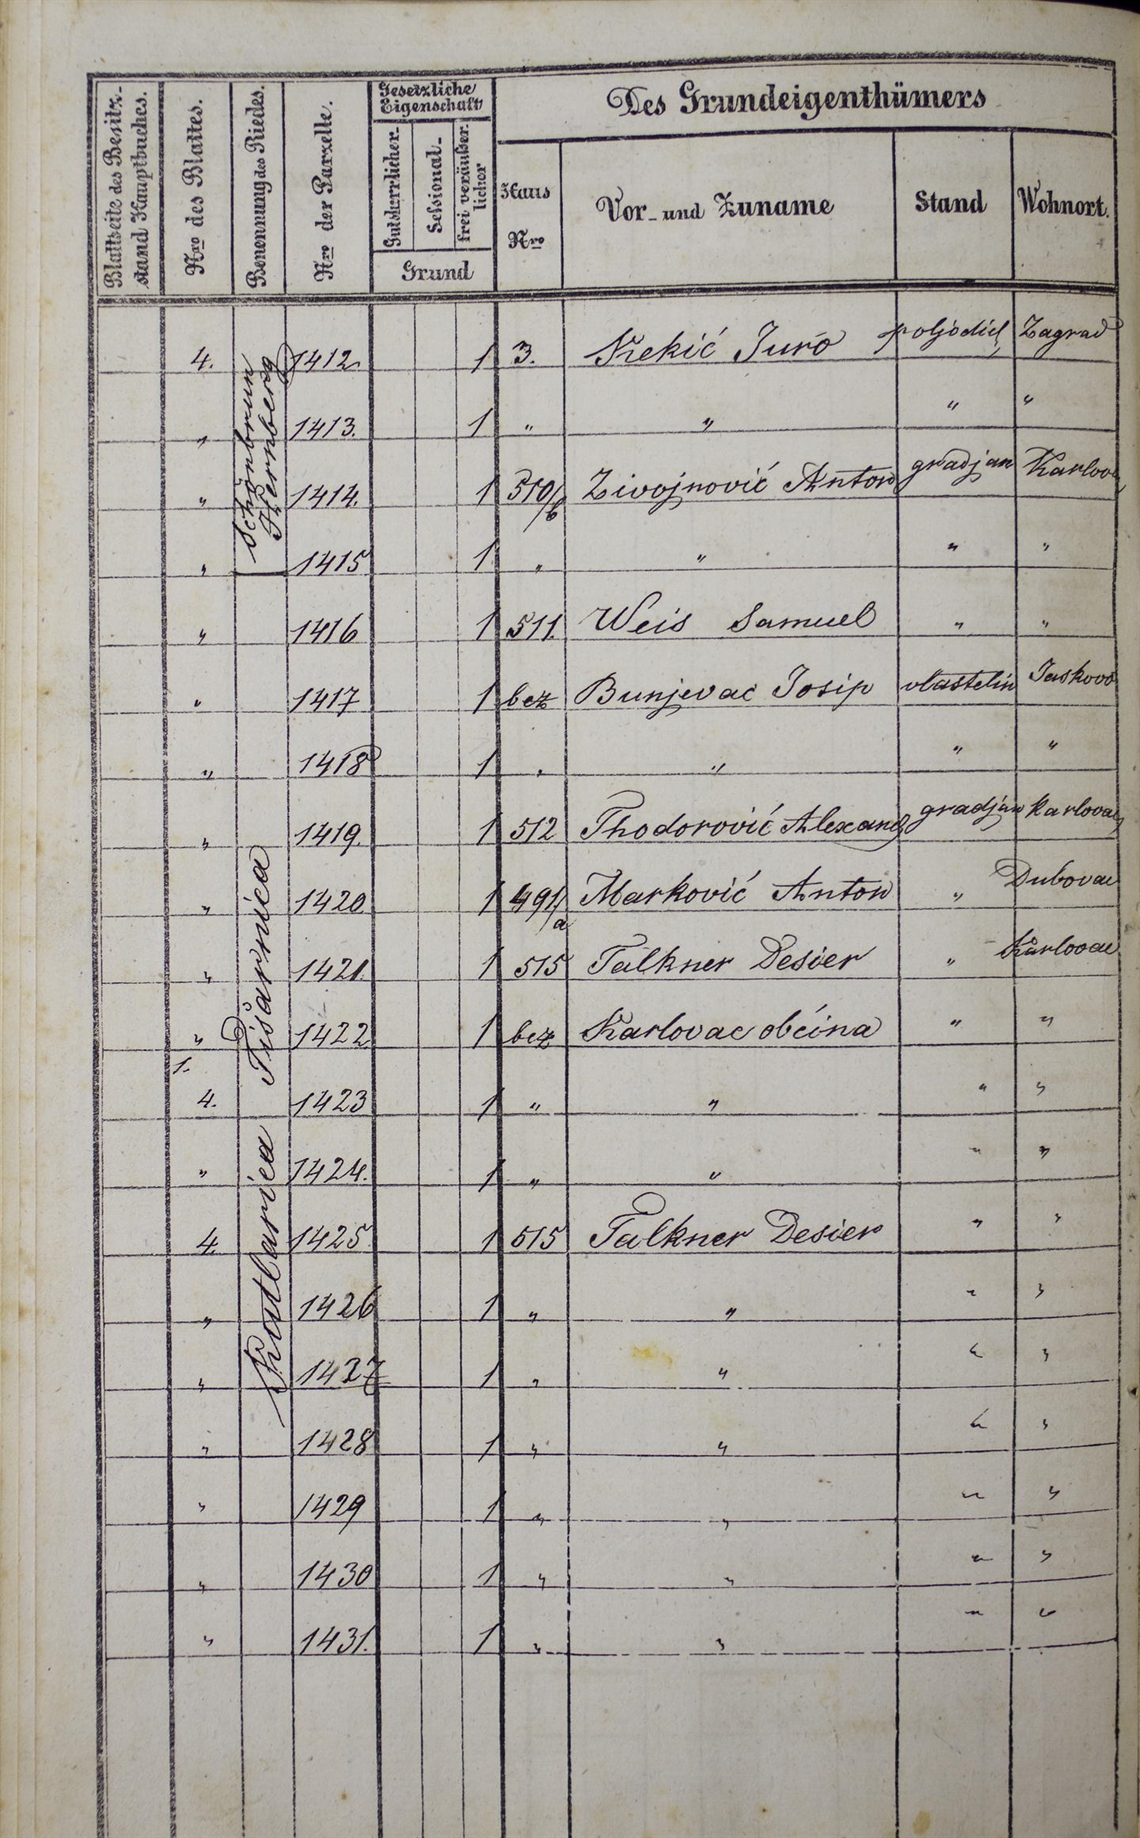 Blattseite des Besitz-
stand Hauptbuches.
Nro des Blattes.
Benennung des Riedes.
Nro der Parzelle.
Gesetzliche
Eigenschaft
Gutsherrlicher.
Sessional-
frei veräußer.
licher
Grund
Des Grundeigenthümers
Haus
Nro
Vor- und Zuname
Stand
Wohnort.
Schönbrun
Sternberg
Pišarnica
4. 1412. 1 3. Kekić Juro Zagrad
„ 1413. 1 „ „ „ „
„ 1414. 1 510/b Zivojnović Anton gradjan Karlovac
„ 1415 1 „ „ „ „
„ 1416 1 511. Weis Samuel „ „
„ 1417 1 bez Bunjevac Josip vlastelin Jaskovo
„ 1418 1 „ „ „ „
„ 1419. 1 512 Thodorović Alexand gradjan Karlovac
„ 1420 1 491/a Marković Anton „ Dubovac
„ 1421. 1 515 Falkner Desier „ Karlovac
„ 1422 1 bez Karlovac obćina „ „
1.
4. 1423 1 „ „ „ „
„ 1424. 1 „ „ „ „
4. 1425 1 515 Falkner Desier „ „
„ 1426 1 „ „ „ „
„ 1427 1 „ „ „ „
„ 1428 1 „ „ „ „
„ 1429 1 „ „ „ „
„ 1430 1 „ „ „ „
„ 1431. 1 „ „ „ „